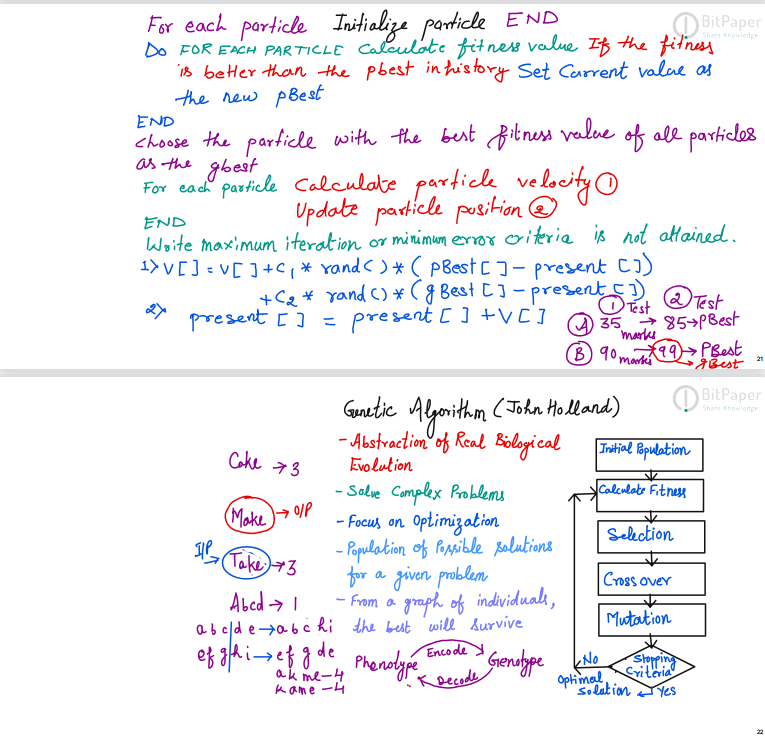 For each particle Initialize particle END
BitPaper
Share Knowledge
Do FOR EACH PARTICLE Calculate fitness value If the fitness
is better than the pbest in history Set Current value as
the new pBest
END
choose the particle with the best fitness value of all particles
as the gbest
For each particle Calculate particle velocity ①
Update particle position ②
END
Write maximum iteration or minimum error criteria is not attained.
1) V[] = V[] + C1 * rand() * (pBest[] - present [])
+ C2 * rand() * (gBest[] - present [])
2) present [] = present [] + V[]
① Test ② Test
A 35 marks → 85 → pBest
B 90 marks → 99 → PBest
→ gBest
21
BitPaper
Share Knowledge
Genetic Algorithm (John Holland)
- Abstraction of Real Biological
Evolution
- Solve Complex Problems
- Focus on Optimization
- Population of Possible solutions
for a given problem
- From a graph of individuals,
the best will survive
Cake → 3
Make → O/P
I/P → Take → 3
Abcd → 1
a b c | d e → a b c h i
e f g | h i → e f g d e
a k m e - 4
k a m e - 4
Phenotype Encode Genotype
Decode
Initial Population
Calculate Fitness
Selection
Cross over
Mutation
Stopping
Criteria
No
Yes
Optimal
solution
22